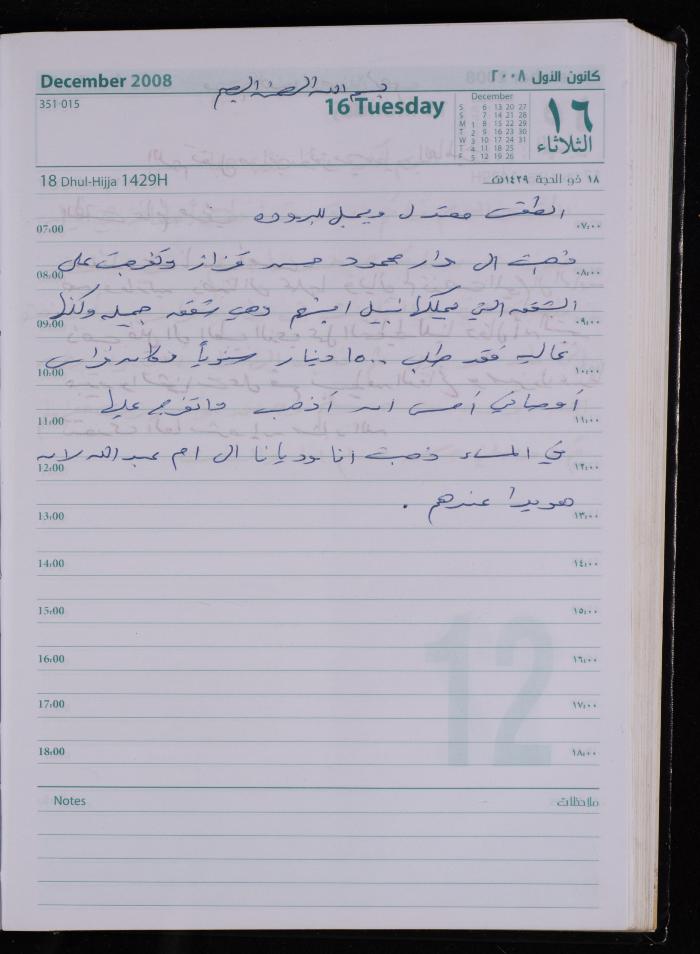 December 2008
كانون الأول ٢٠٠٨
بسم الله الرحمن الرحيم
351 015
16 Tuesday
December
S 6 13 20 27
S 7 14 21 28
M 1 8 15 22 29
T 2 9 16 23 30
W 3 10 17 24 31
T 4 11 18 25
F 5 12 19 26
١٦
الثلاثاء
18 Dhul-Hijja 1429H
١٨ ذو الحجة ١٤٢٩هـ
الطقس معتدل ويميل للبروده
07:00 ٠٧:٠٠
ذهبت الى دار محمود حسن قزاز وتفرجت على
08:00 ٠٨:٠٠
الشقه التي يملكها نبيل ابنهم وهي شقه جميله ولكنها
09:00 ٠٩:٠٠
غاليه فقد طلب ١٥٠٠ دينار سنوياً وكانه فراس
10:00 ١٠:٠٠
أوصاني أمس انه أذهب واتفرج عليها
11:00 ١١:٠٠
في المساء ذهبت انا وديانا الى ام عبدالله لانه
12:00 ١٢:٠٠
هويدا عندهم .
13:00 ١٣:٠٠
14:00 ١٤:٠٠
15:00 ١٥:٠٠
16:00 ١٦:٠٠
17:00 ١٧:٠٠
18:00 ١٨:٠٠
12
Notes ملاحظات